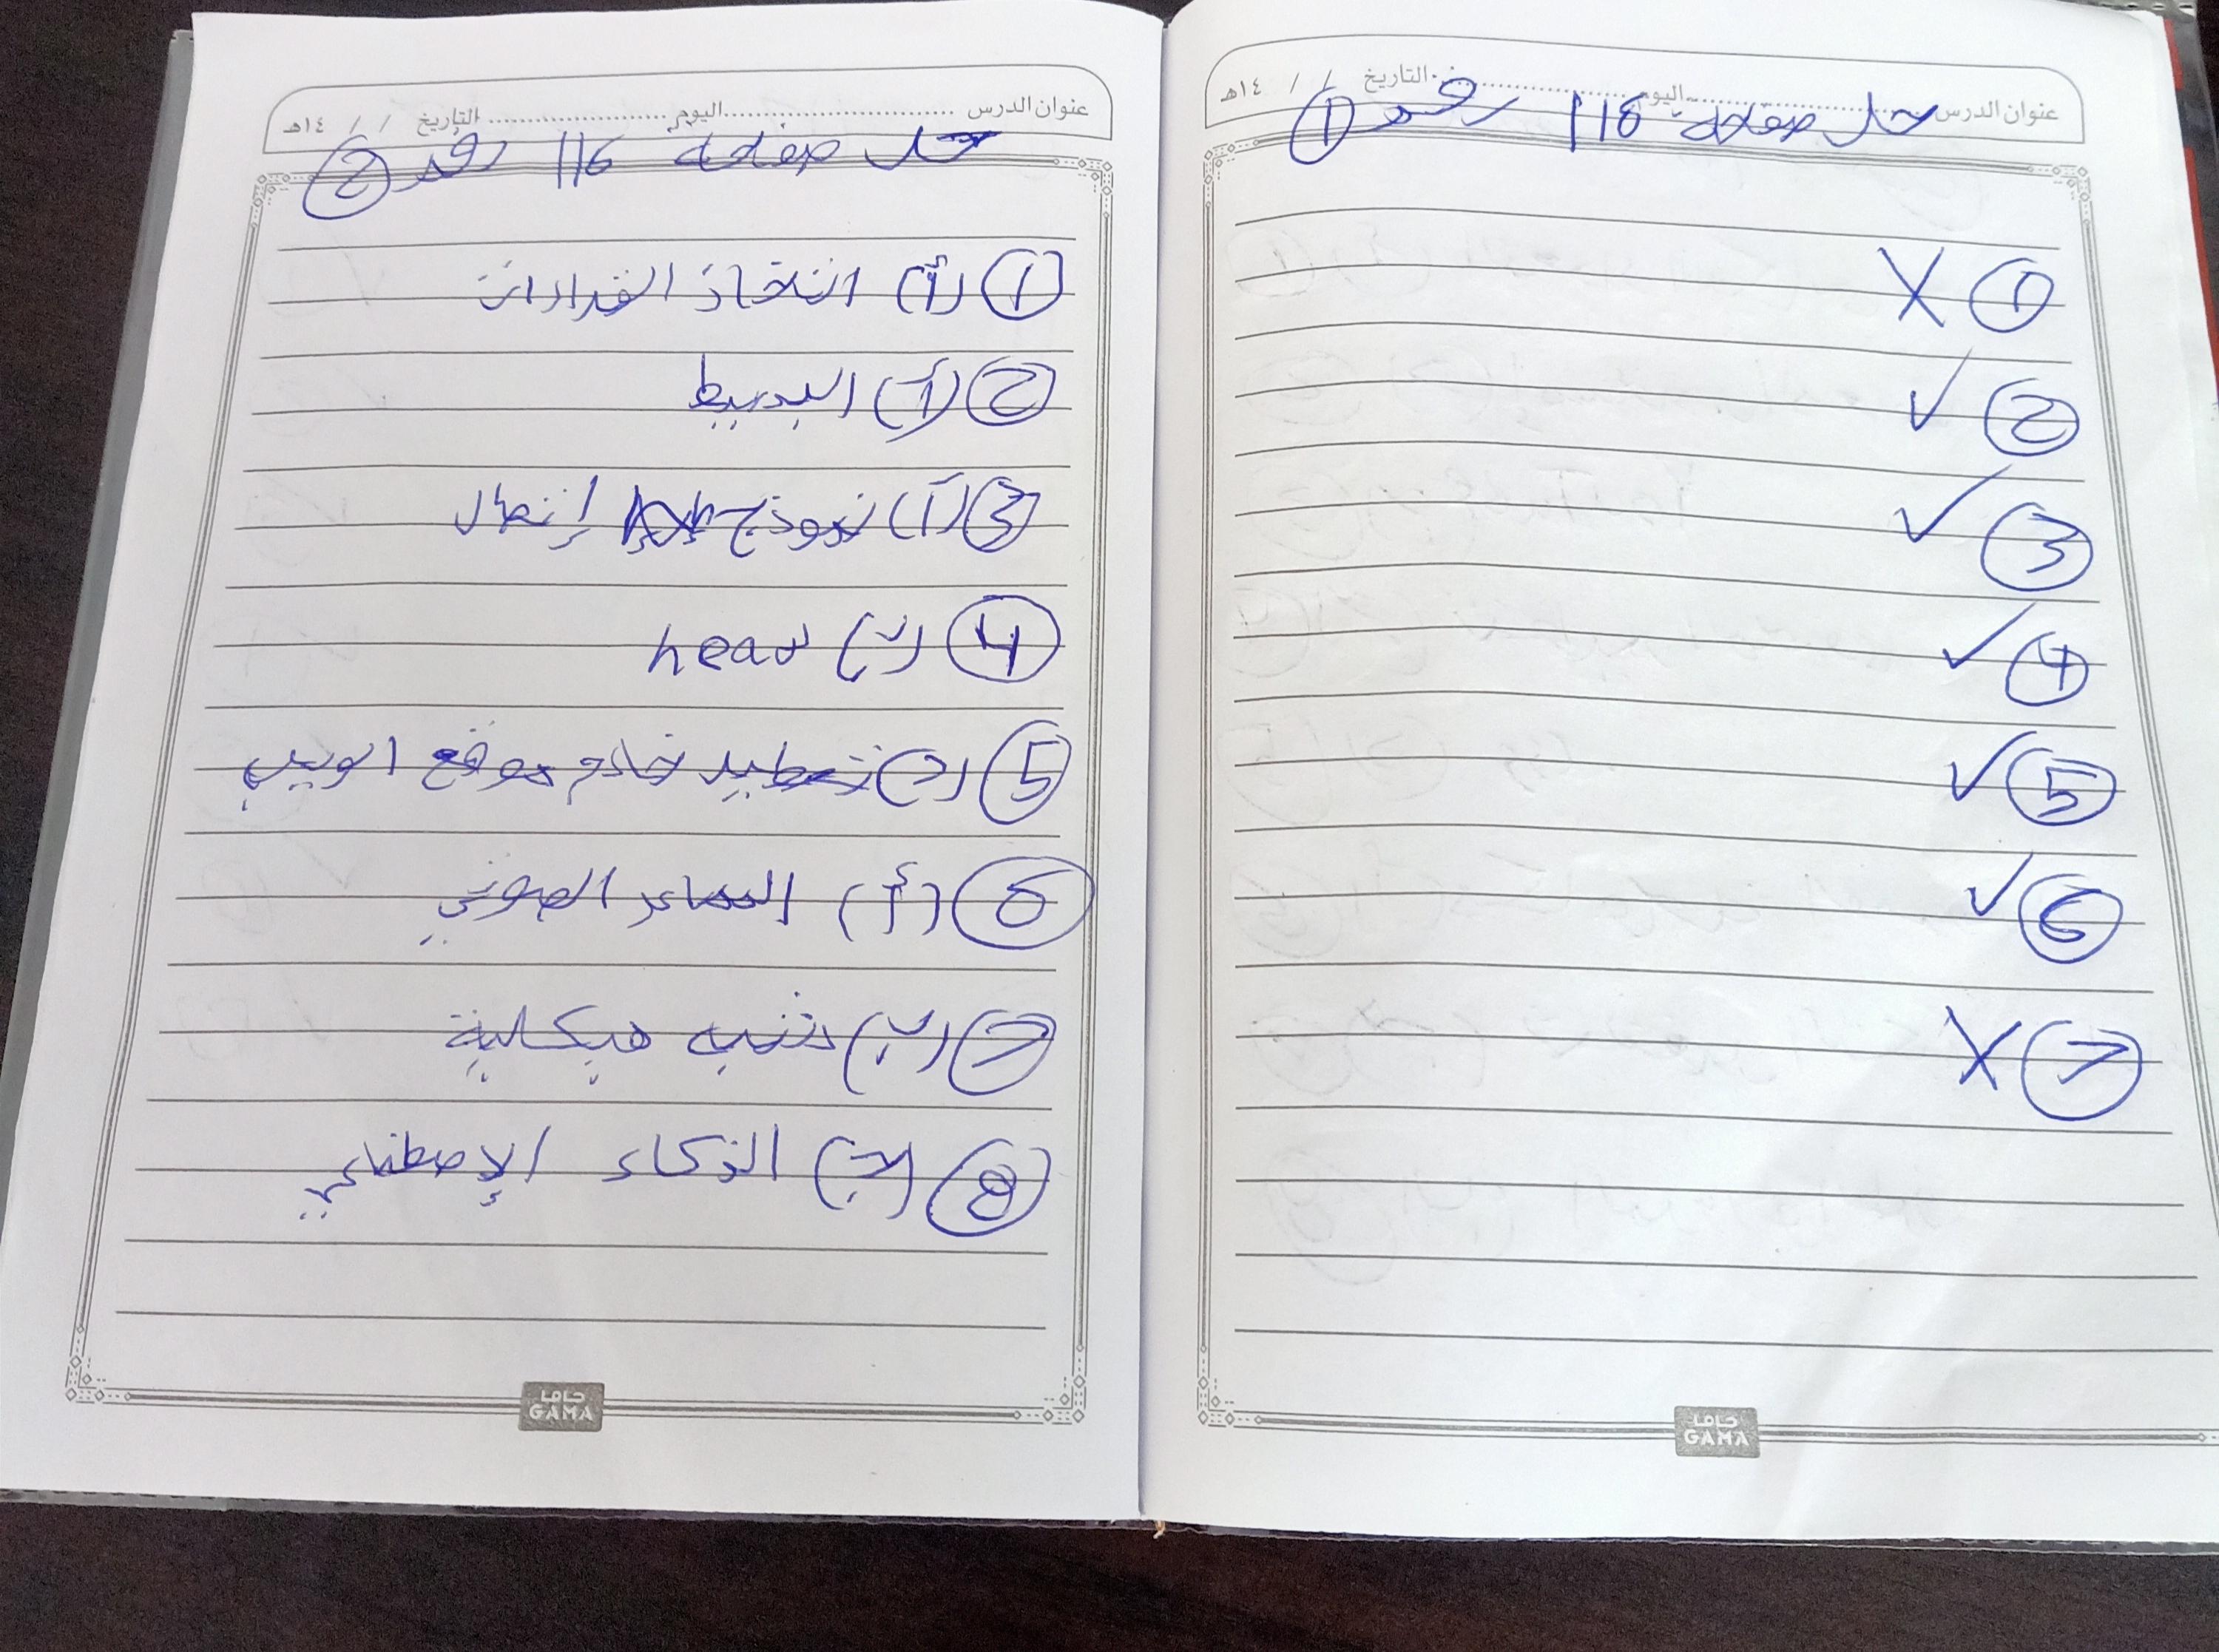 عنوان الدرس ........ اليوم ........ التاريخ / / ١٤هـ
حل صفحة 116 رقم ①
① X
② ✓
③ ✓
④ ✓
⑤ ✓
⑥ ✓
⑦ X
جاما
GAMA
عنوان الدرس ........ اليوم ........ التاريخ / / ١٤هـ
حل صفحة 116 رقم ②
① (أ) اتخاذ القرارات
② (أ) البسيط
③ (أ) نموذج إتصال
④ (ب) head
⑤ (ج) خادم موقع الويب
⑥ (أ) المساعد الصوتي
⑦ (ب) شبه هيكلية
⑧ (ج) الذكاء الإصطناعي
جاما
GAMA